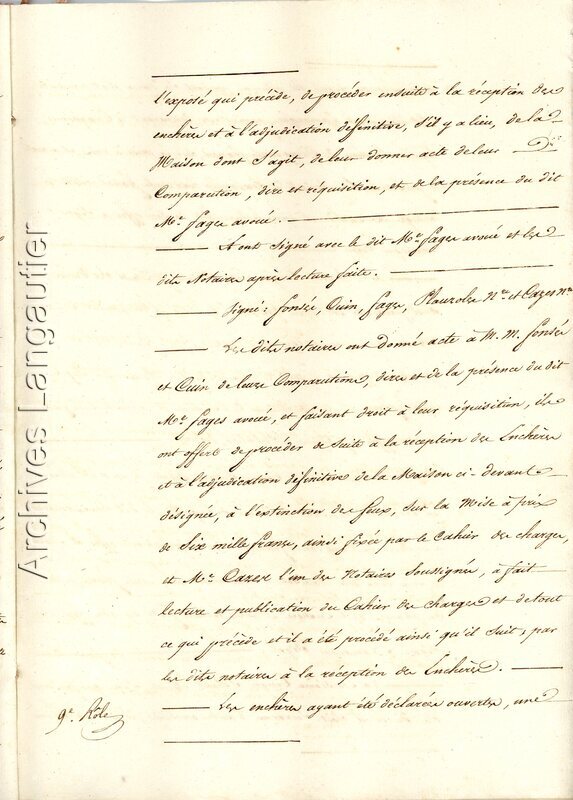 l'exposé qui précède, de procéder ensuite à la réception des
enchères et à l'adjudication définitive, s'il y a lieu, de la
Maison dont s'agit, de leur donner acte de leur
Comparution, dire et réquisition, et de la présence du dit
Me. fages avoué.
Et ont signé avec le dit Me. fages avoué et les
dits Notaires après lecture faite.
Signé: fonsés, Cuin, fages, Nre. et Cazes Nre.
Les dits notaires ont donné acte à M.M. fonsés
et Cuin de leurs Comparutions, dires et de la présence du dit
Me. fages avoué, et faisant droit à leur réquisition, ils
ont offert de procéder de suite à la réception des Enchères
et à l'adjudication définitive de la Maison ci-devant
désignée, à l'extinction des feux, sur la Mise à prix
de Six mille francs, ainsi fixée par le Cahier des charges,
et Me. Cazes l'un des Notaires Soussignés, à fait
lecture et publication du Cahier des charges et de tout
ce qui précède et il a été procédé ainsi qu'il suit, par
les dits notaires à la réception des Enchères.
Les enchères ayant été déclarées ouvertes, une
9e. Rôle
Archives Langautier